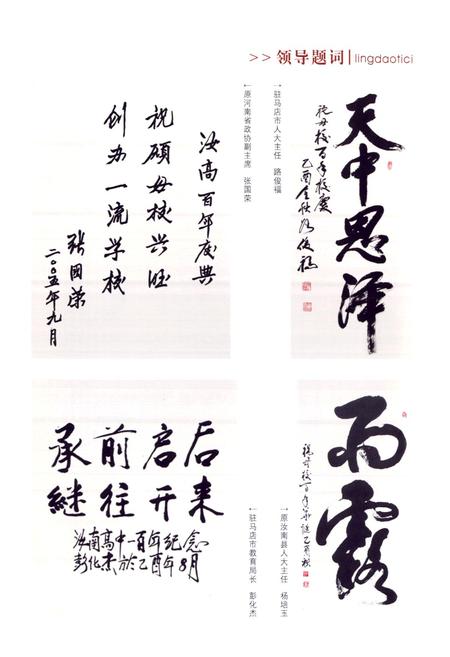 >> 领导题词 | lingdaotici
天中恩泽
祝母校百年校庆
乙酉金秋路俊福
↑驻马店市人大主任 路俊福
↑原河南省政协副主席 张国荣
汝高百年庆典
祝愿母校兴旺
创办一流学校
张国荣
二〇〇五年九月
雨露
祝母校一百年华诞乙酉秋
↑原汝南县人大主任 杨培玉
↑驻马店市教育局长 彭化杰
后来
启开
前往
承继
汝南高中一百年纪念
彭化杰於乙酉年8月